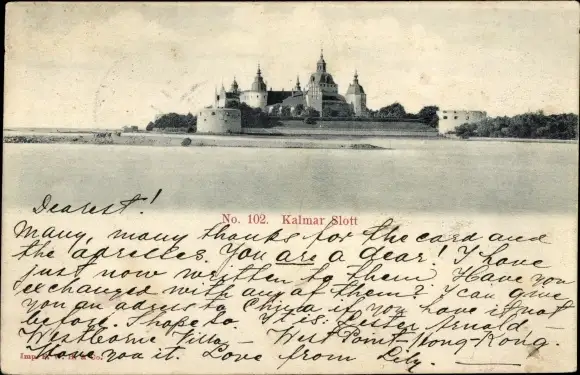 Dearest!
No. 102. Kalmar Slott
Many, many thanks for the card and
the adresses. You are a dear! I have
just now written to them. Have you
exchanged with any of them? I can give
you an adress to China if you have it not
before. I hope so. It is: Peter Arnold –
Westborne Villa – West Point – Hong-Kong.
Have you it. Love from Lily.
Imp.